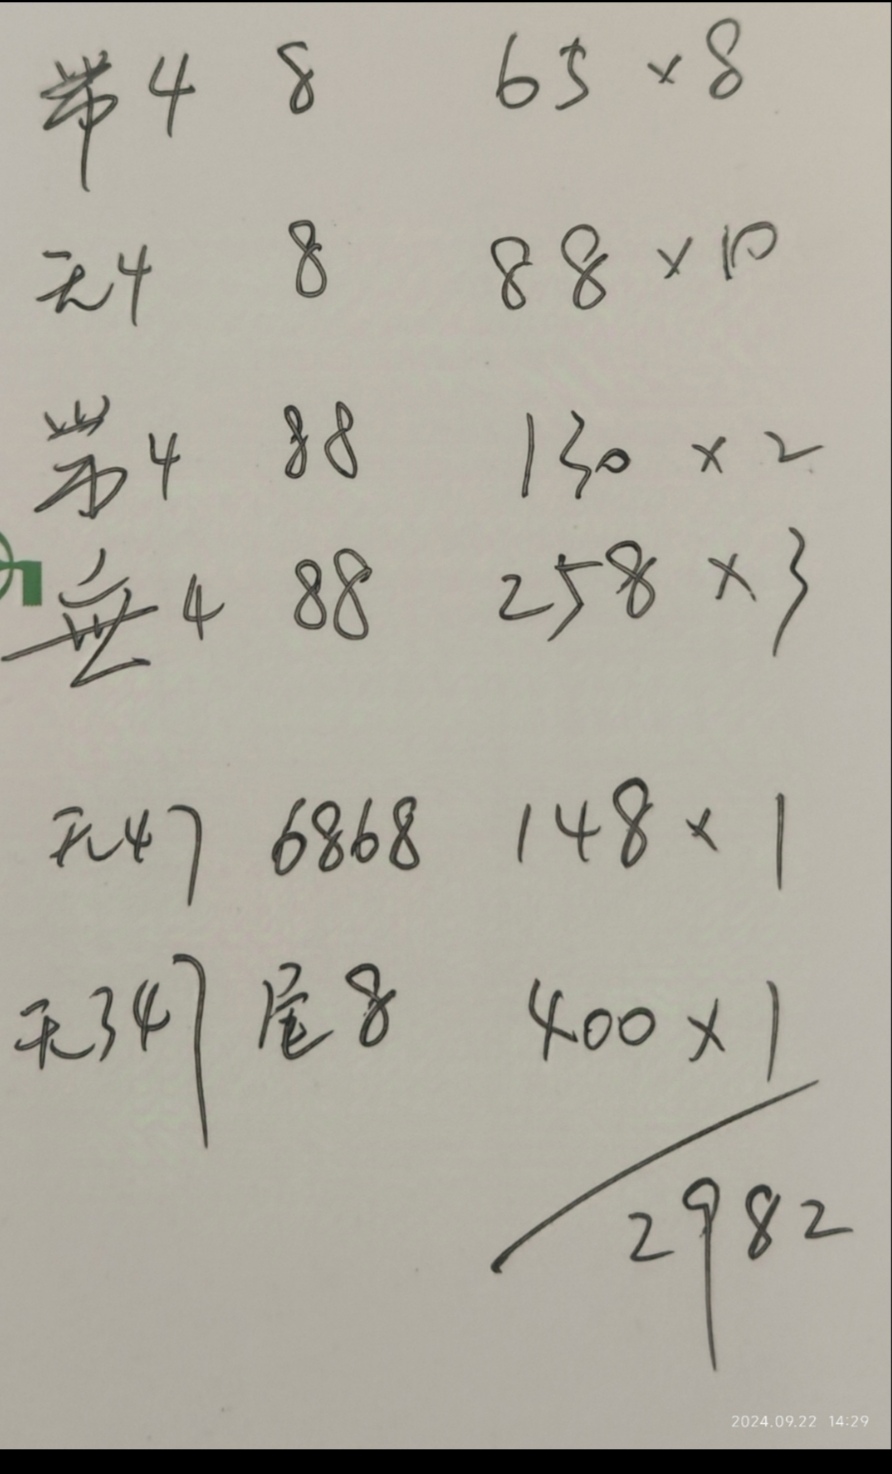 带4 8 65×8
无4 8 88×10
带4 88 130×2
無4 88 258×3
无47 6868 148×1
无347 尾8 400×1
2982
2024.09.22 14:29